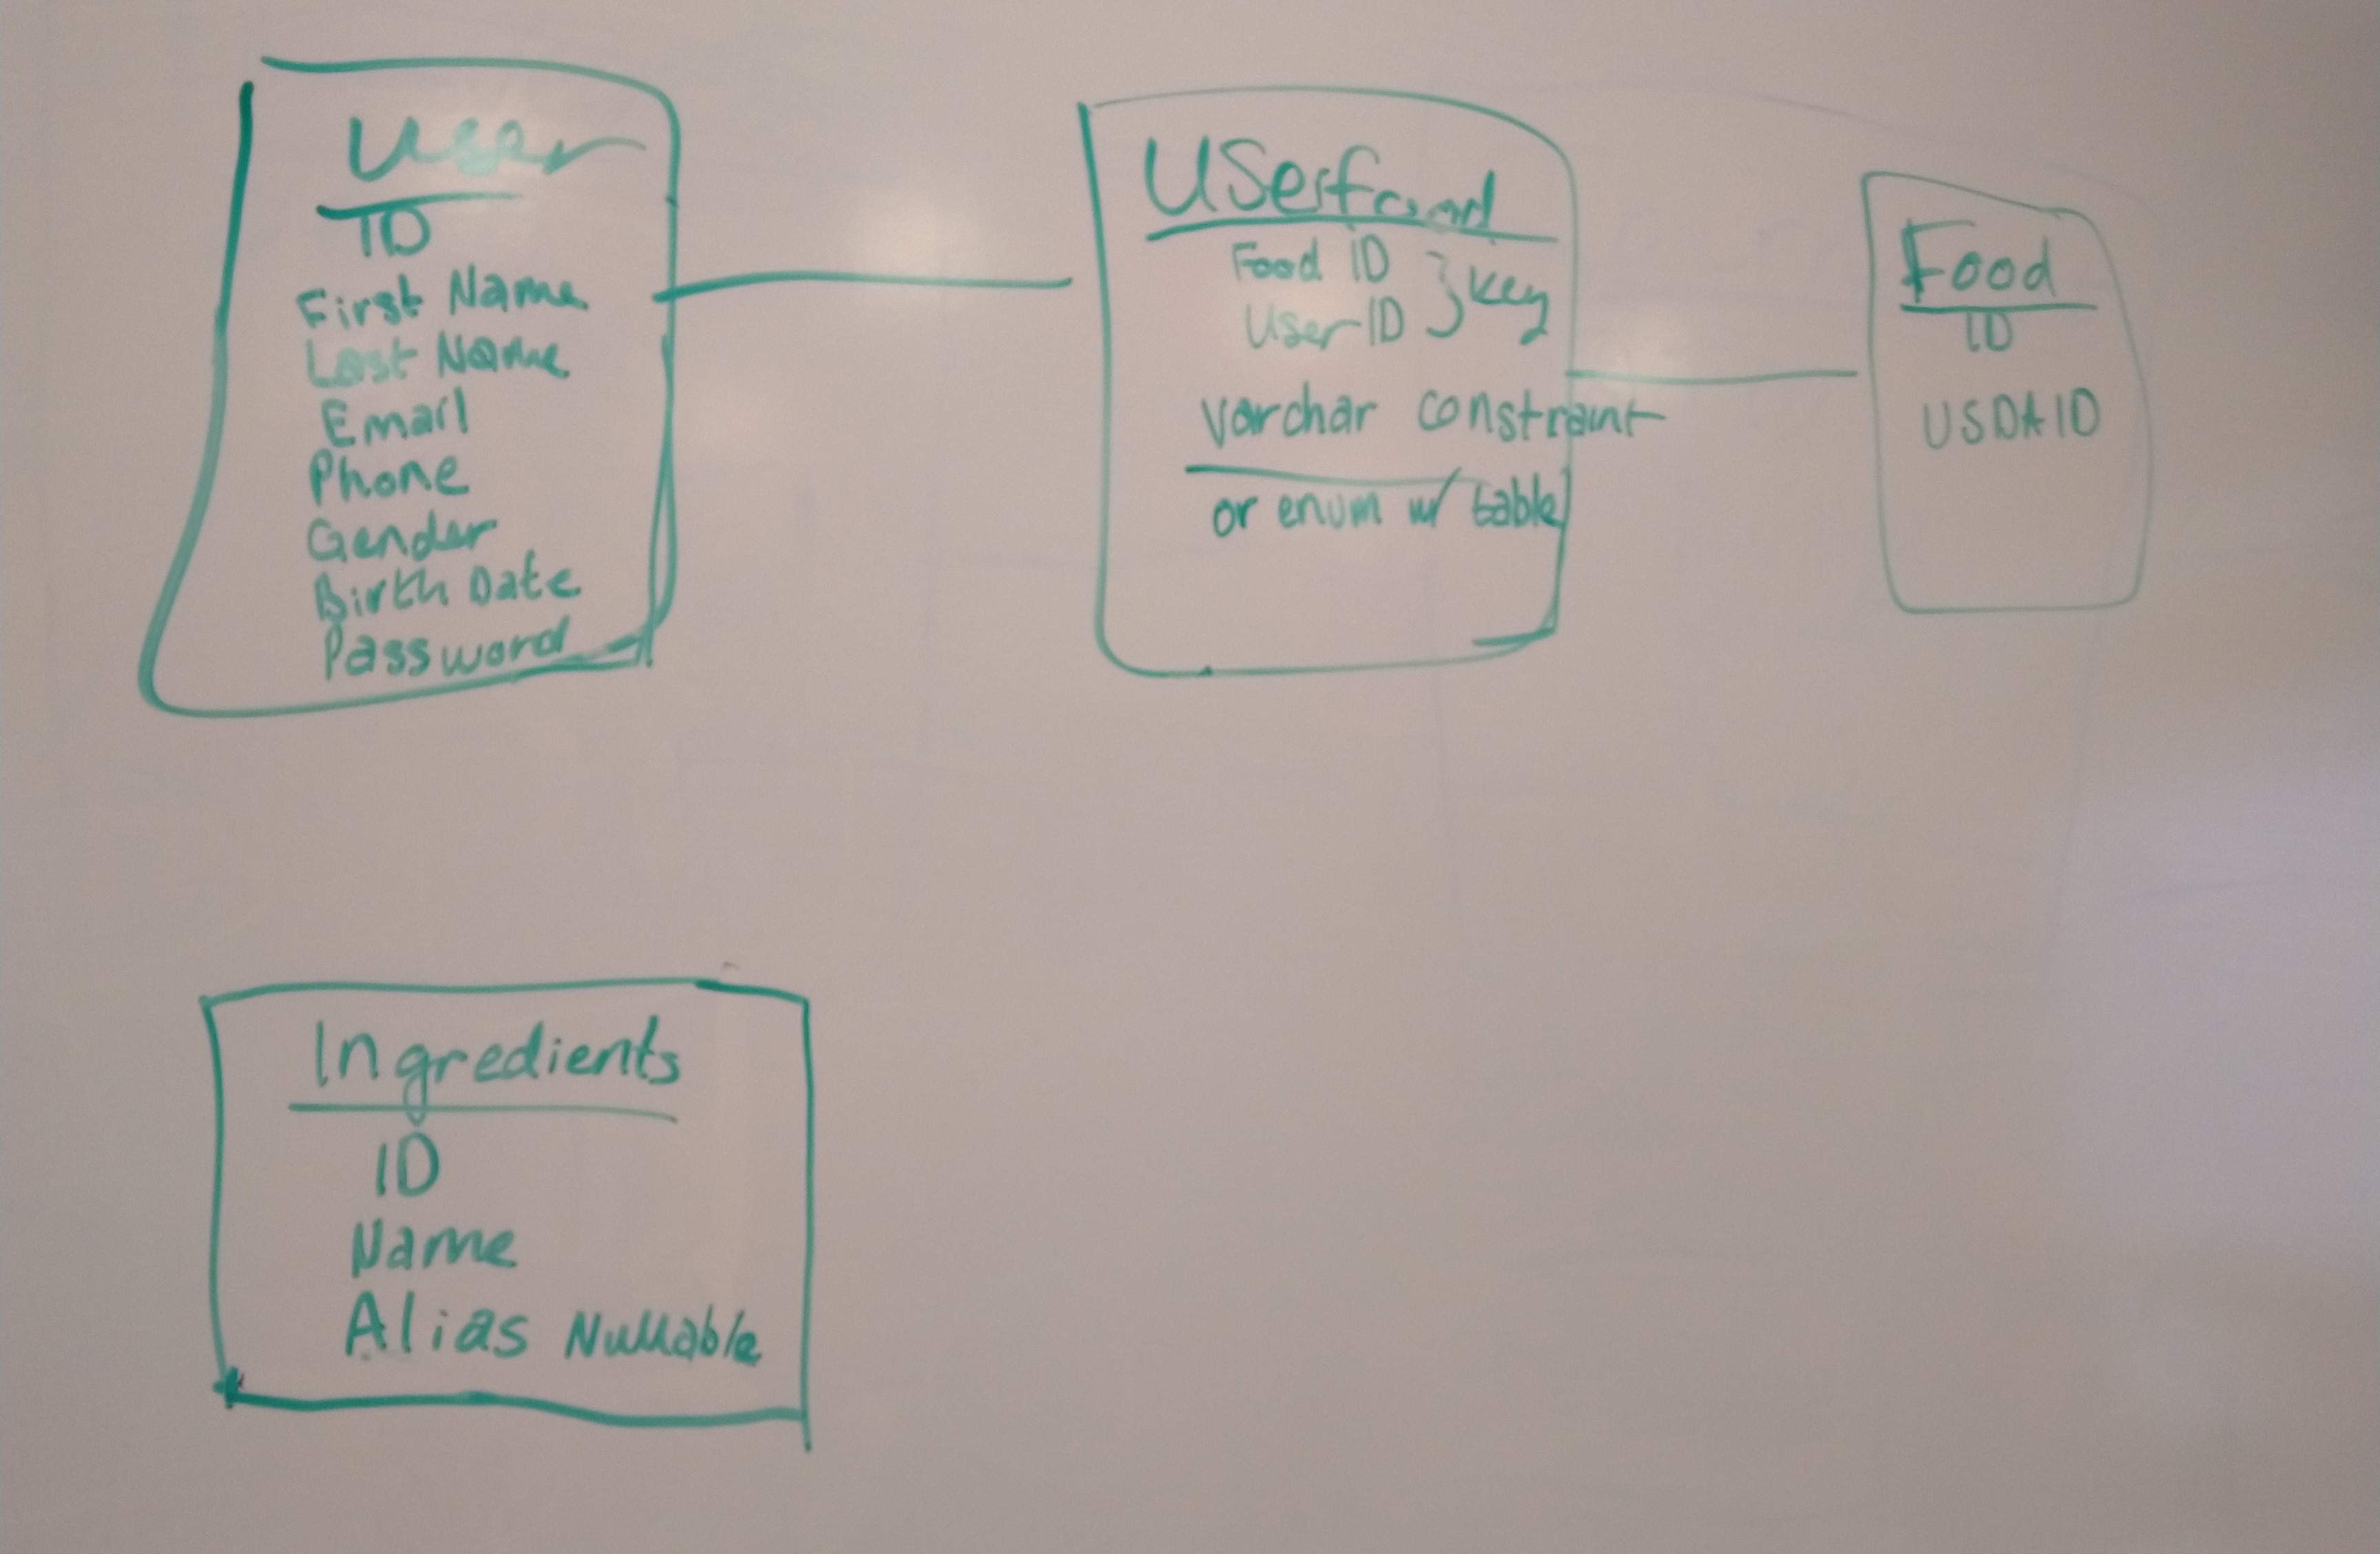 User
ID
First Name
Last Name
Email
Phone
Gender
Birth Date
Password
Userfood
Food ID
User ID } key
Varchar constraint
or enum w/ table
Food
ID
USDA ID
Ingredients
ID
Name
Alias Nullable